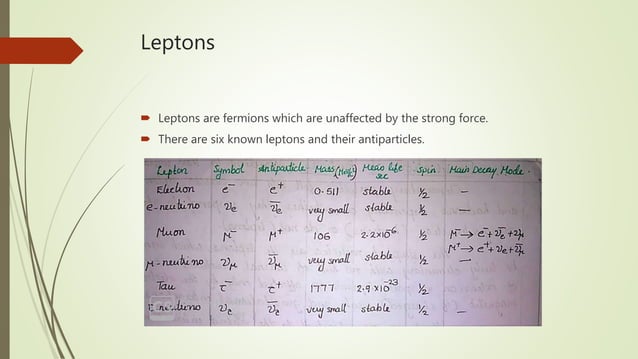 Leptons
Leptons are fermions which are unaffected by the strong force.
There are six known leptons and their antiparticles.
Lepton Symbol Antiparticle Mass(MeV) Mean life sec Spin Main Decay Mode.
Electron e⁻ e⁺ 0.511 stable ½ –
e-neutrino νe ν̅e very small stable ½ –
Muon μ⁻ μ⁺ 106 2.2×10⁻⁶ ½ μ⁻→ e⁻+ν̅e+νμ
μ⁺→ e⁺+νe+ν̅μ
μ-neutrino νμ ν̅μ very small stable ½ –
Tau τ⁻ τ⁺ 1777 2.9×10⁻²³ ½
neutrino very small stable ½ –